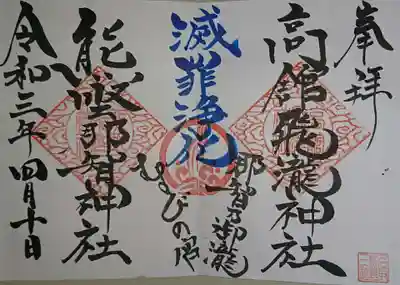 奉拝
高舘飛瀧神社
那智乃御瀧
滅罪浄化
むすびの
熊野那智神社
令和三年四月十日